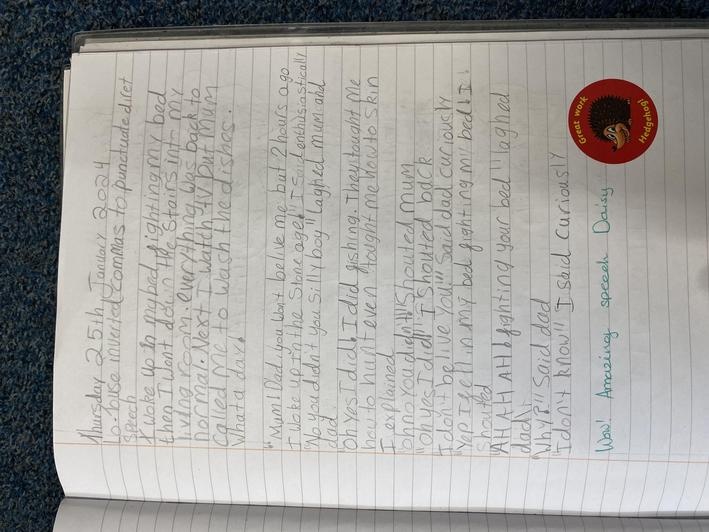 Thursday 25th January 2024
Lo-buse inverted commas to punctuate diret
speech
I woke up in my bed fighting my bed
then I went down the stairs into my
living room. everything was back to
normal. Next I watch TV but Mum
called me to wash the dishes.
What a day!
"Mum! Dad you wont belive me but 2 hours ago
I woke up in the Stone age! I Said enthusiastically
"No you didn't you silly boy" laghed mum and
dad
"Oh Yes I did! I did fishing. They tought Me
how to hunt even tought me how to skin
I explained
"Oh no You didn't!" Shouted mum
"Oh yes I did!" I shouted back
I don't belive You!!" Said dad curiously
Yep I fell in my bed fighting mi bed! I
Shouted
"AHAHAH fighting your bed" laghed
dad!
"Why?" Said dad
I don't know!! I said curiously
Wow! Amazing speech Daisy
Great work
Hedgehog!